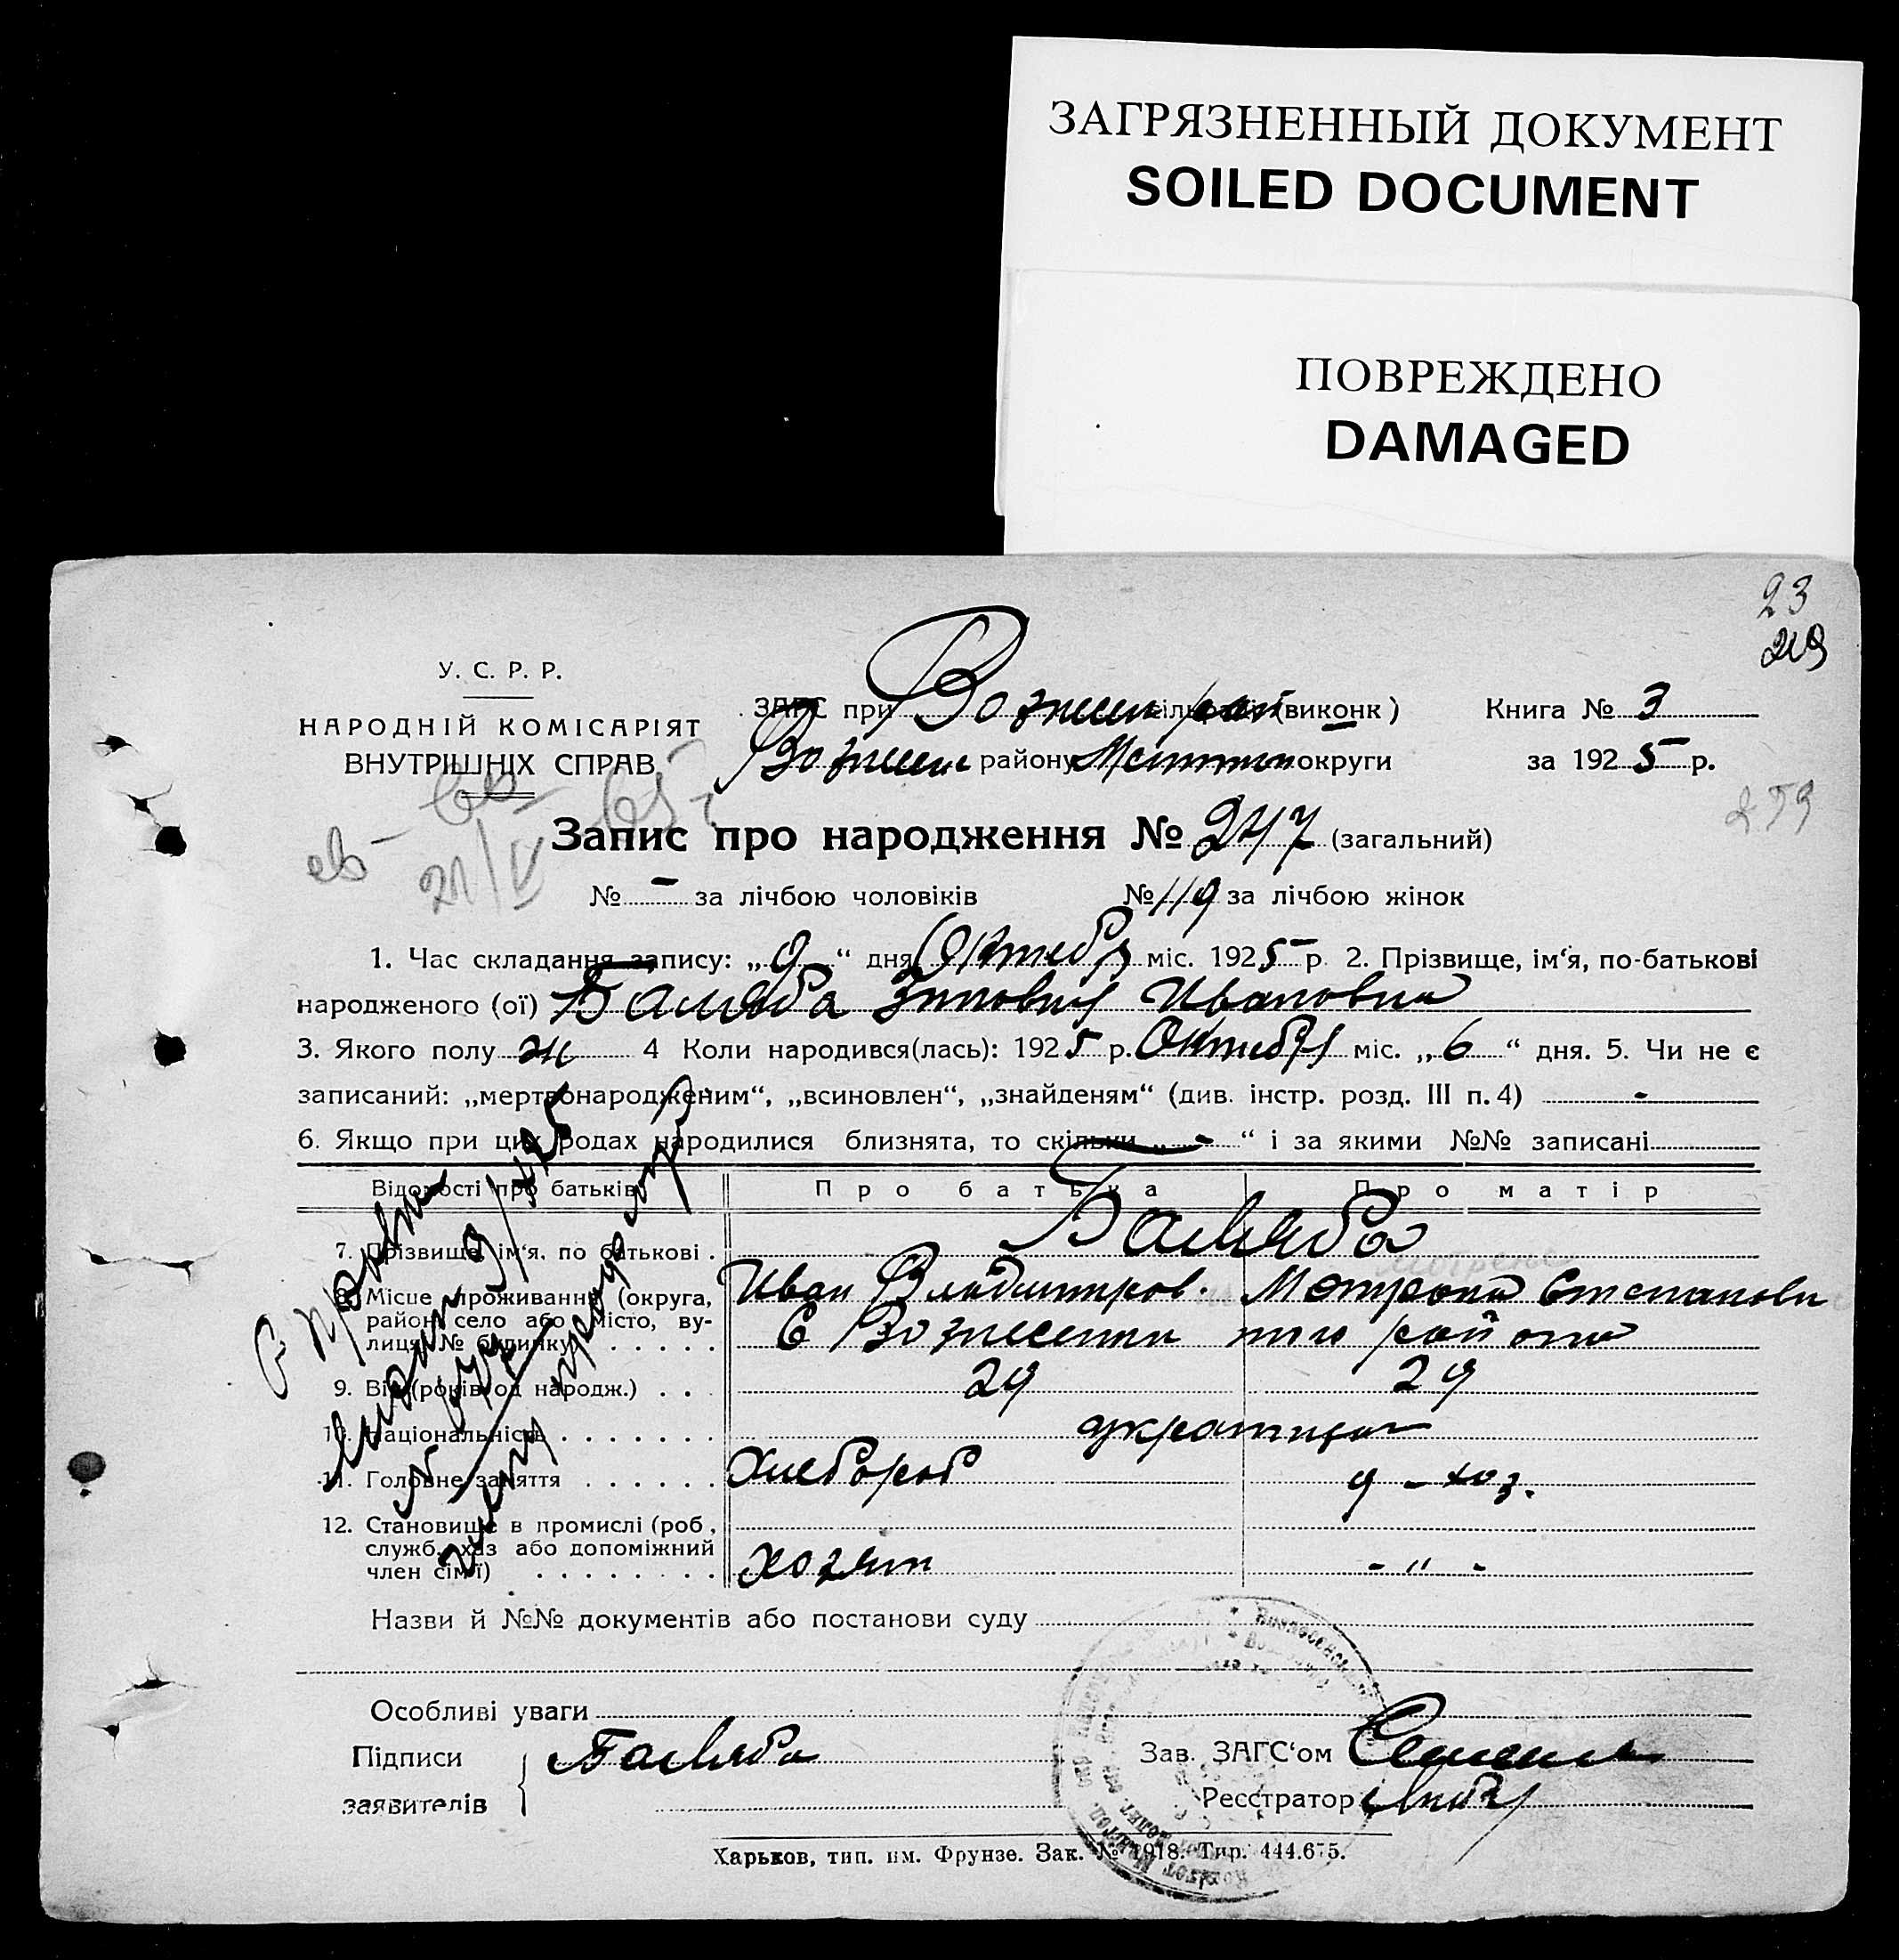 ЗАГРЯЗНЕННЫЙ ДОКУМЕНТ
SOILED DOCUMENT
ПОВРЕЖДЕНО
DAMAGED
23
219
У. С. Р. Р.
НАРОДНІЙ КОМІСАРІЯТ
ВНУТРІШНІХ СПРАВ
ЗАГС при Вознесен рай (виконк)
Книга № 3
Вознесен району округи
за 1925 р.
21/V 65 г
Запис про народження № 247 (загальний)
№ - за лічбою чоловіків № 119 за лічбою жінок
1. Час складання запису: „9“ дня Октебр міс. 1925 р. 2. Прізвище, ім‘я, по-батькові
народженого (ої) Зиновия Ивановна
3. Якого полу ж 4 Коли народився(лась): 1925 р. Октебря міс. „6“ дня. 5. Чи не є
записаний: „мертвонародженим“, „всиновлен“, „знайденям“ (див. інстр. розд. III п. 4) -
6. Якщо при цих родах народилися близнята, то скільки „-“ і за якими №№ записані
Відомості про батьків Про батька Про матір
7. Прізвище, ім‘я, по батькові .
Иван Владимиров. Матрона Степановн
8. Місце проживання (округа,
район, село або місто, ву-
лиця, № будинку) . . . . .
С Вознесенки того района
9. Вік (років од народж.) . . . 29 29
10. Національність . . . . . . . украинцы
11. Головне заняття . . . . . . Хлебороб д-хоз.
12. Становище в промислі (роб.,
служб., хаз або допоміжний
член сім‘ї) . . . . . . . . хозяин - " -
Назви й №№ документів або постанови суду
Особливі уваги
Підписи
заявителів
Зав. ЗАГС‘ом
Реєстратор
Харьков, тип. им. Фрунзе. Зак. № 1918. Тир. 444.675.